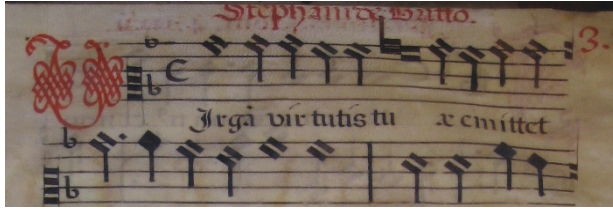 Stephani de Britto. 3.
VIrgã virtutis tuæ emittet